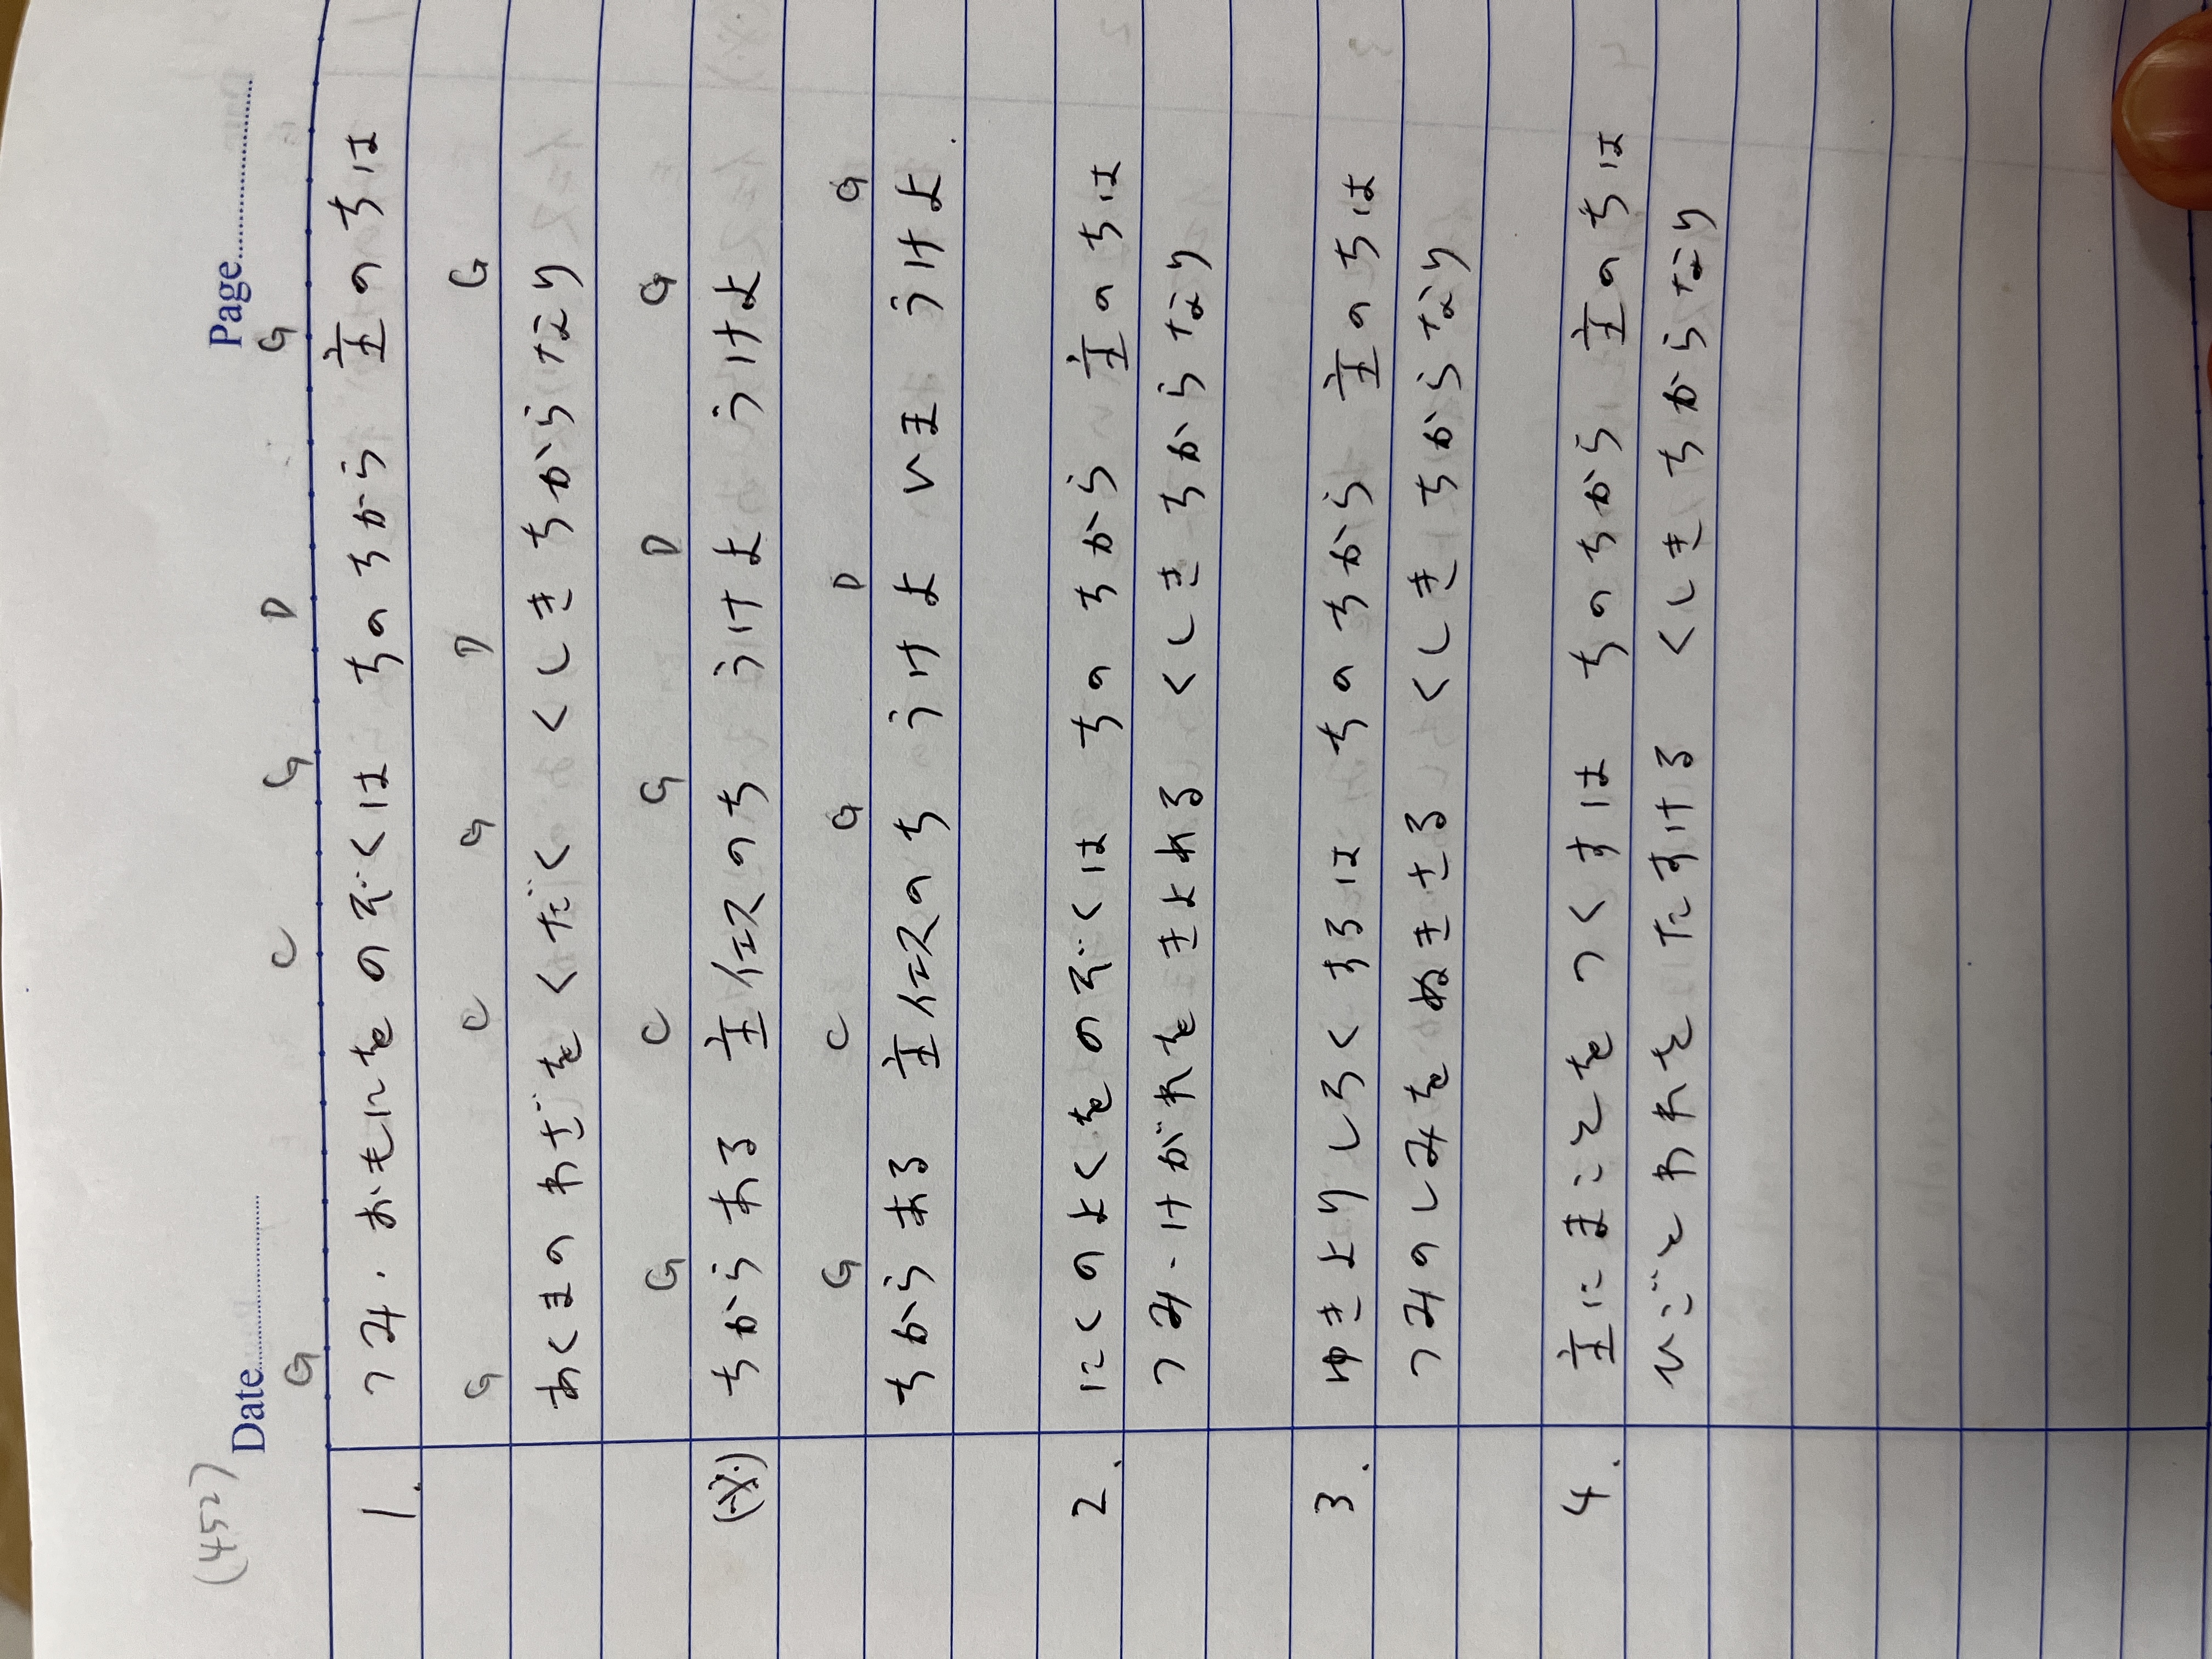 (452)
Date Page
G C G D G
1. つみ・おもにをのぞくは ちのちから 主のちは
G C G D G
あくまのわざをくだく くしきちからなり
G C G D G
(※) ちからある 主イエスのち うけようけよ
G C G D G
ちからある 主イエスのち うけよいまうけよ.
2. にくのよくをのぞくは ちのちから 主のちは
つみ・けがれをきよめる くしきちからなり
3. ゆきよりしろくするは ちのちから 主のちは
つみのしみをぬきさる くしきちからなり
4. 主にまことをつくすは ちのちから 主のちは
ひごとわれをたすける くしきちからなり